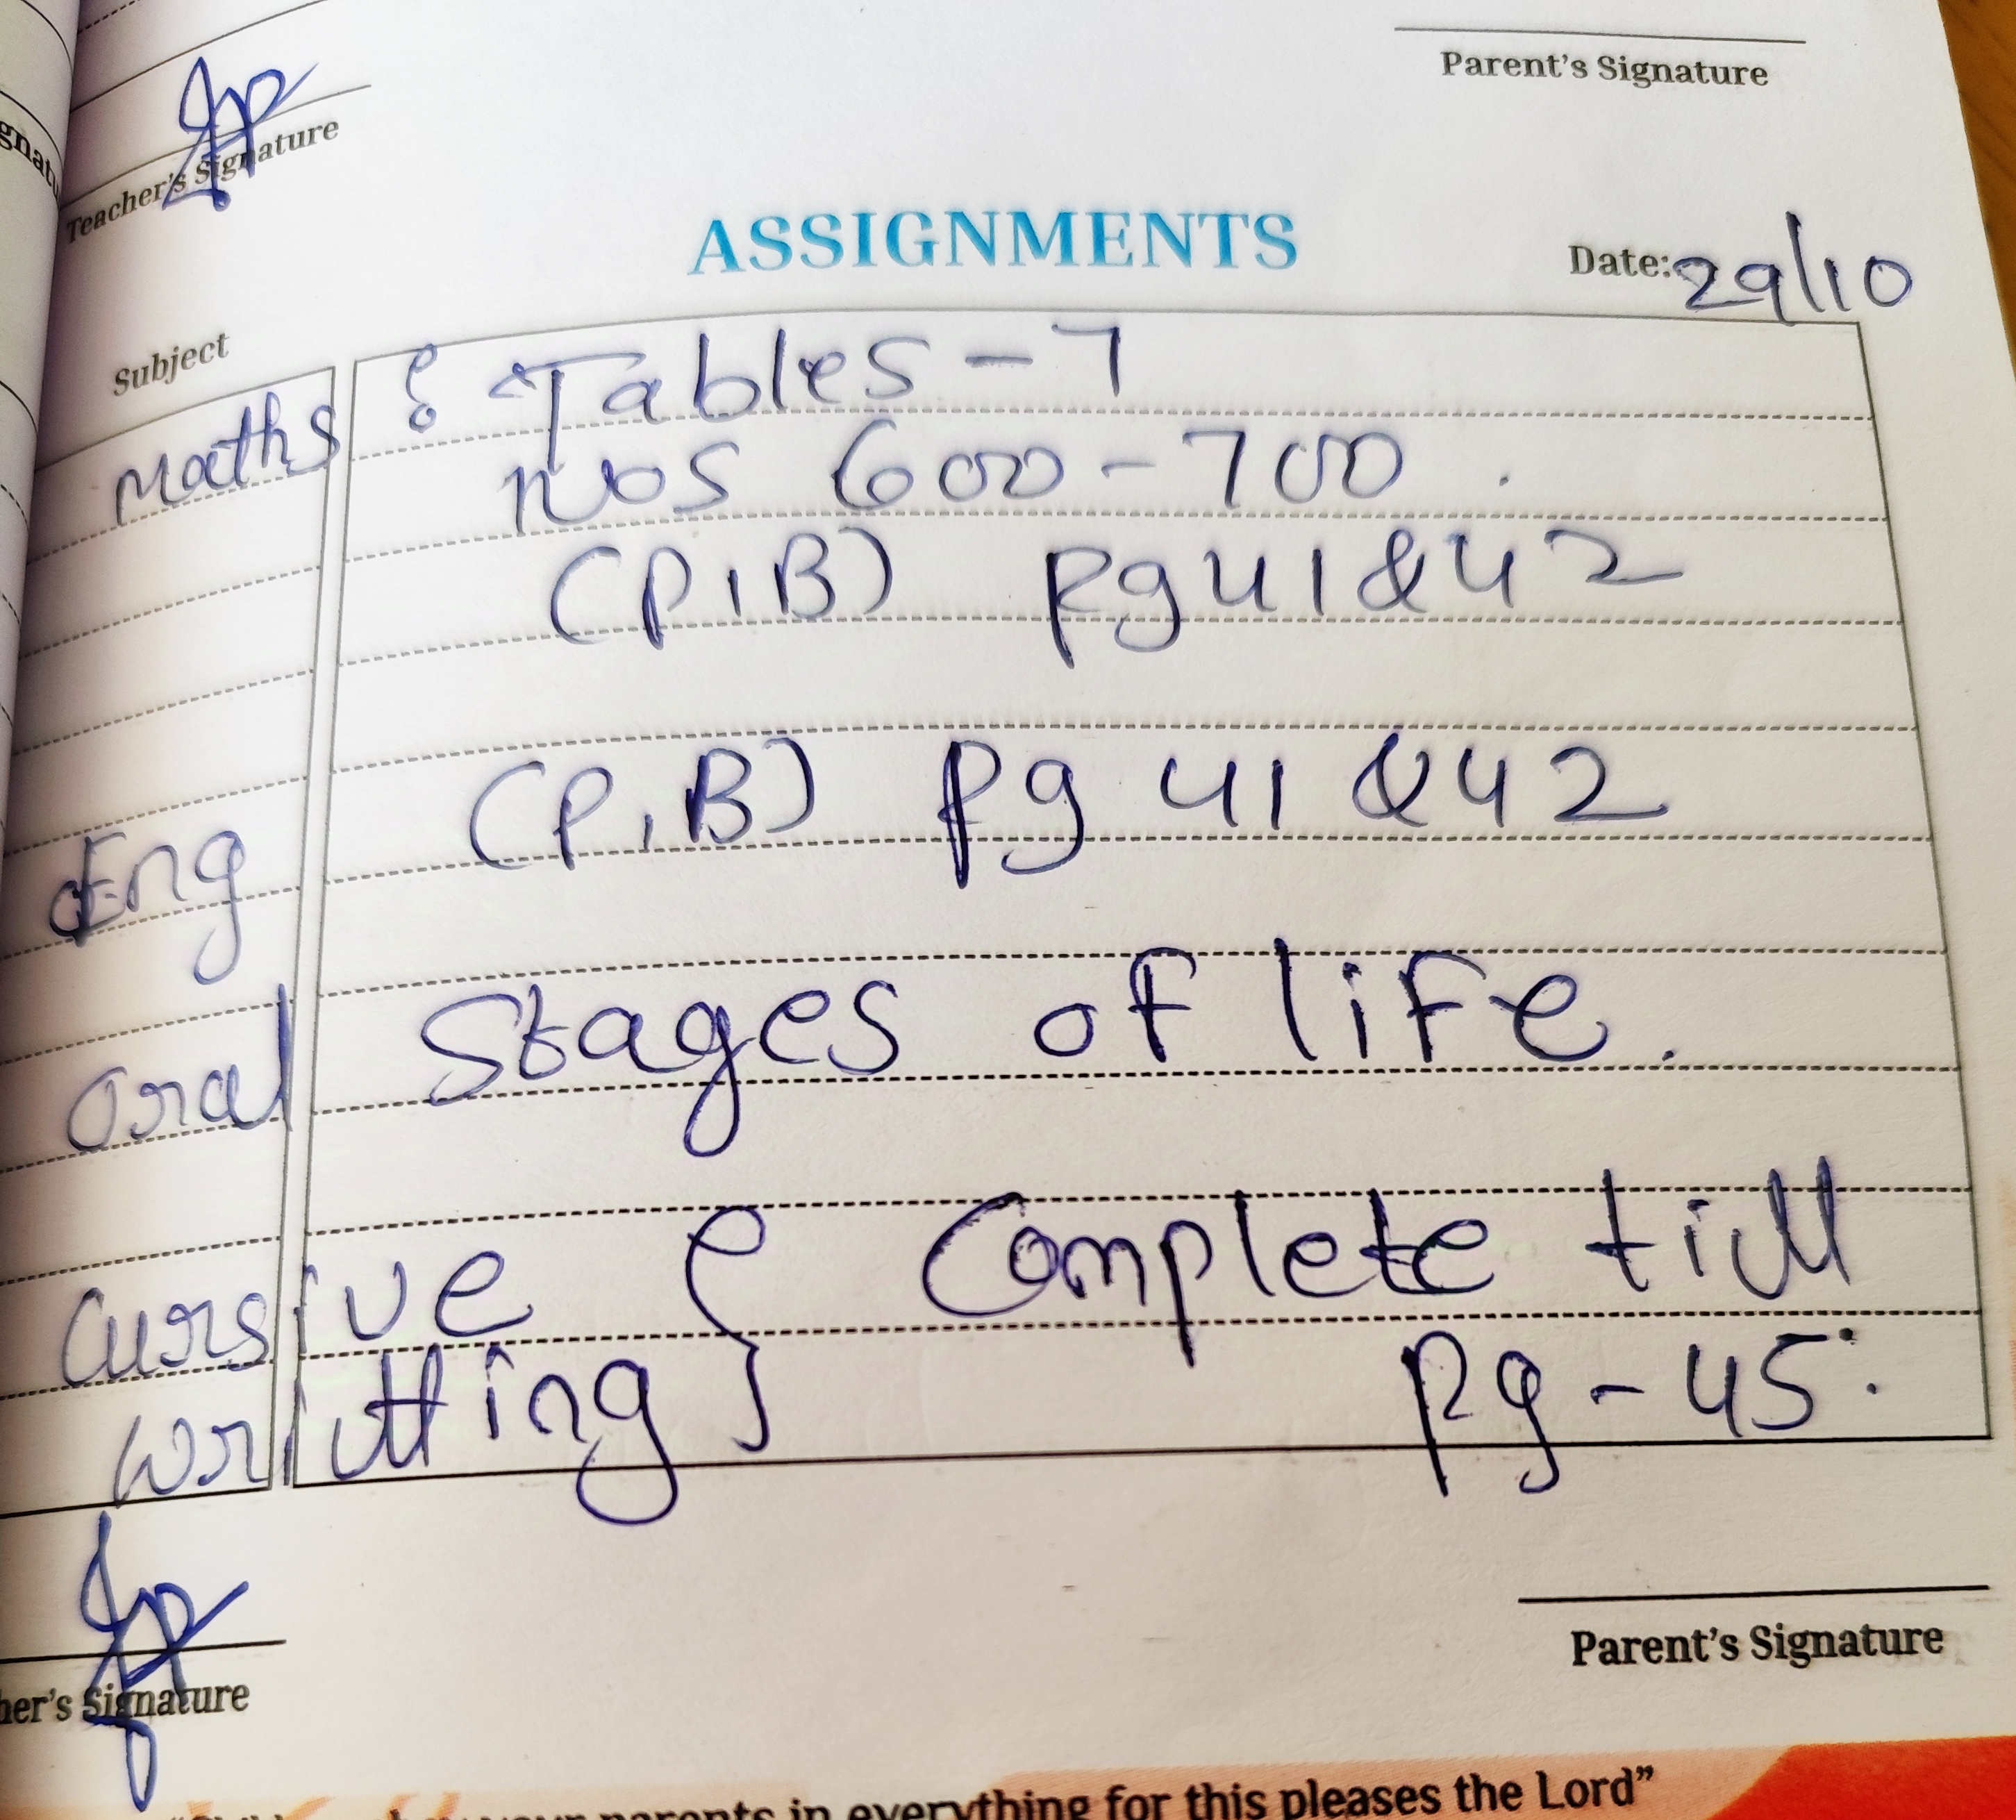 Parent's Signature
Teacher's Signature
ASSIGNMENTS
Date: 29/10
Subject
Maths : Tables - 7
nos 600 - 700 .
(P,B) Pg 41 & 42
Eng (P,B) Pg 41 & 42
Oral Stages of life.
Cursive Complete till
writting } Pg - 45.
Parent's Signature
her's Signature
your parents in everything for this pleases the Lord”